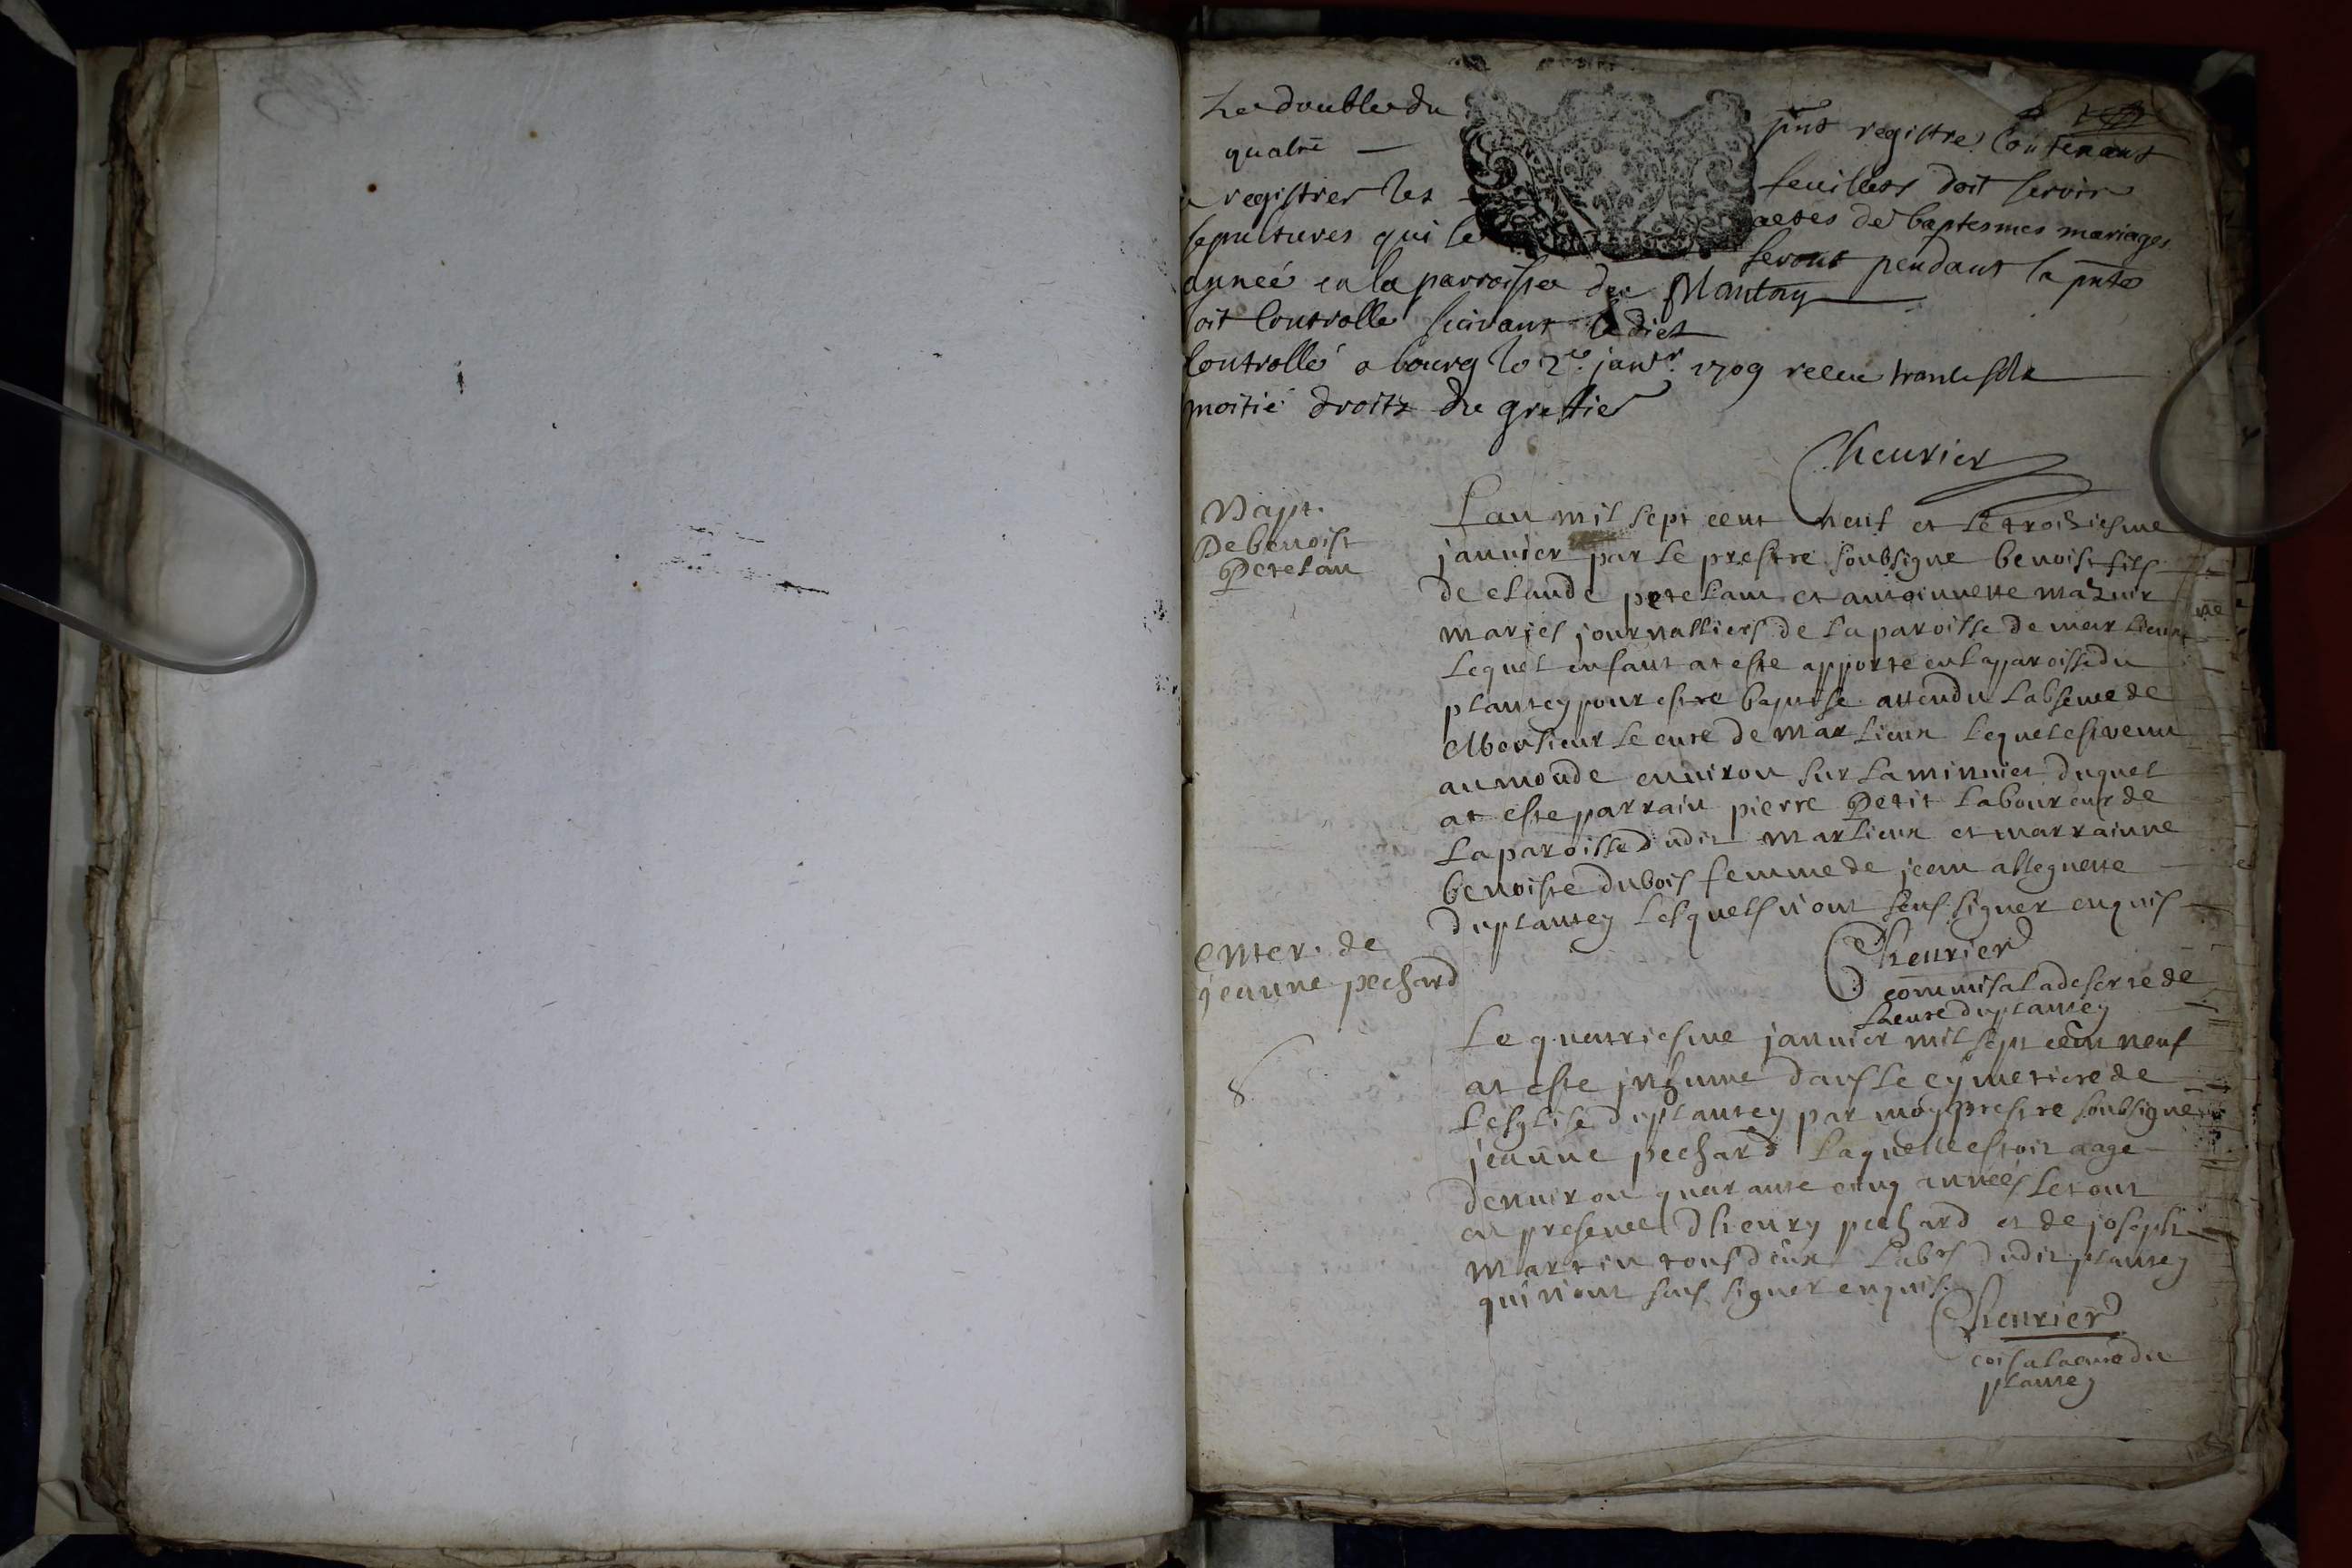 Le double du pnt registre Contenant
quatre feuillets doit servir
a registrer les actes de baptesmes mariages
sepultures qui se feront pendant la pnte
année en la parroisse du Plantay
soit Controllé suivant ledict
Controllé a bourg le 2e janvr 1709 receu trente sols
moitié droits du greffier
Cheurier
Bapt.
De benoist
Perelau
Lan mil sept cent neuf et le troiziesme
jannier par le prestre soubsigne benoist fils
de claude perelau et antoinnette mazuir
maries journalliers de la paroisse de marlieux
Lequel enfant at este apporte en la paroisse du
plantey pour estre baptise attendu labsence de
Monsieur le cure de marlieux lequel est venu
au monde enuiron sur la minuict duquel
at este parrain pierre Petit laboureur de
la paroisse dudit marlieux et marrainne
benoiste dubois femme de jean alleguette
du plantey lesquels nont seus signer enquis
Cheurier
commis a la deserte de
la cure du plantey
enter. de
jeanne pechard
Le quatriesme jannier mil sept cent neuf
at este inhume dans le cymetiere de
lesglise du plantey par moy prestre soubsigne
jeanne pechard laquelle estoit aage
denuiron quarante cinq années le tout
en presence dhenry pechard et de joseph
martin tous deux labrs dudit plantey
qui nont seus signer enquis.
Cheurier
cois a la cure du
plantey